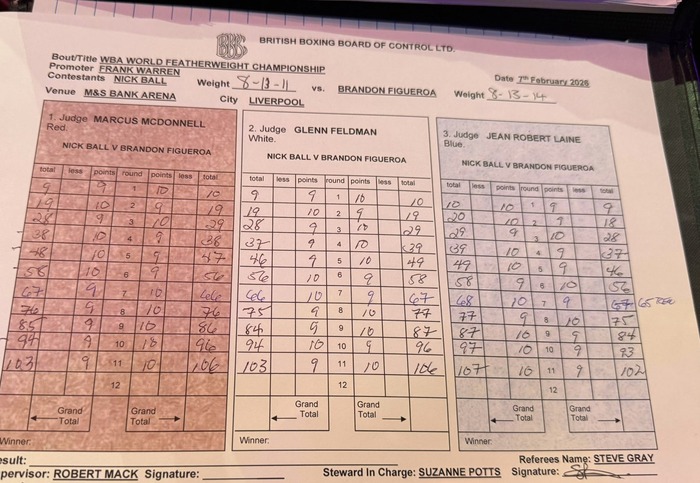 BBBC
BRITISH BOXING BOARD OF CONTROL LTD.
Bout/Title WBA WORLD FEATHERWEIGHT CHAMPIONSHIP
Promoter FRANK WARREN
Date 7th February 2026
Contestants NICK BALL Weight 8-13-11 vs. BRANDON FIGUEROA Weight 8-13-14
Venue M&S BANK ARENA City LIVERPOOL
1. Judge MARCUS MCDONNELL
Red.
NICK BALL V BRANDON FIGUEROA
total less points round points less total
9 9 1 10 10
19 10 2 9 19
28 9 3 10 29
38 10 4 9 38
48 10 5 9 47
58 10 6 9 56
67 9 7 10 66
76 9 8 10 76
85 9 9 10 86
94 9 10 10 96
103 9 11 10 106
12
Grand Total Grand Total
Winner:
2. Judge GLENN FELDMAN
White.
NICK BALL V BRANDON FIGUEROA
total less points round points less total
9 9 1 10 10
19 10 2 9 19
28 9 3 10 29
37 9 4 10 39
46 9 5 10 49
56 10 6 9 58
66 10 7 9 67
75 9 8 10 77
84 9 9 10 87
94 10 10 9 96
103 9 11 10 106
12
Grand Total Grand Total
Winner:
3. Judge JEAN ROBERT LAINE
Blue.
NICK BALL V BRANDON FIGUEROA
total less points round points less total
10 10 1 9 9
20 10 2 9 18
29 9 3 10 28
39 10 4 9 37
49 10 5 9 46
58 9 6 10 56
68 10 7 9 65
77 9 8 10 75
87 10 9 9 84
97 10 10 9 93
107 10 11 9 102
12
Grand Total Grand Total
Winner:
esult:
Referees Name: STEVE GRAY
pervisor: ROBERT MACK Signature: Steward In Charge: SUZANNE POTTS Signature: